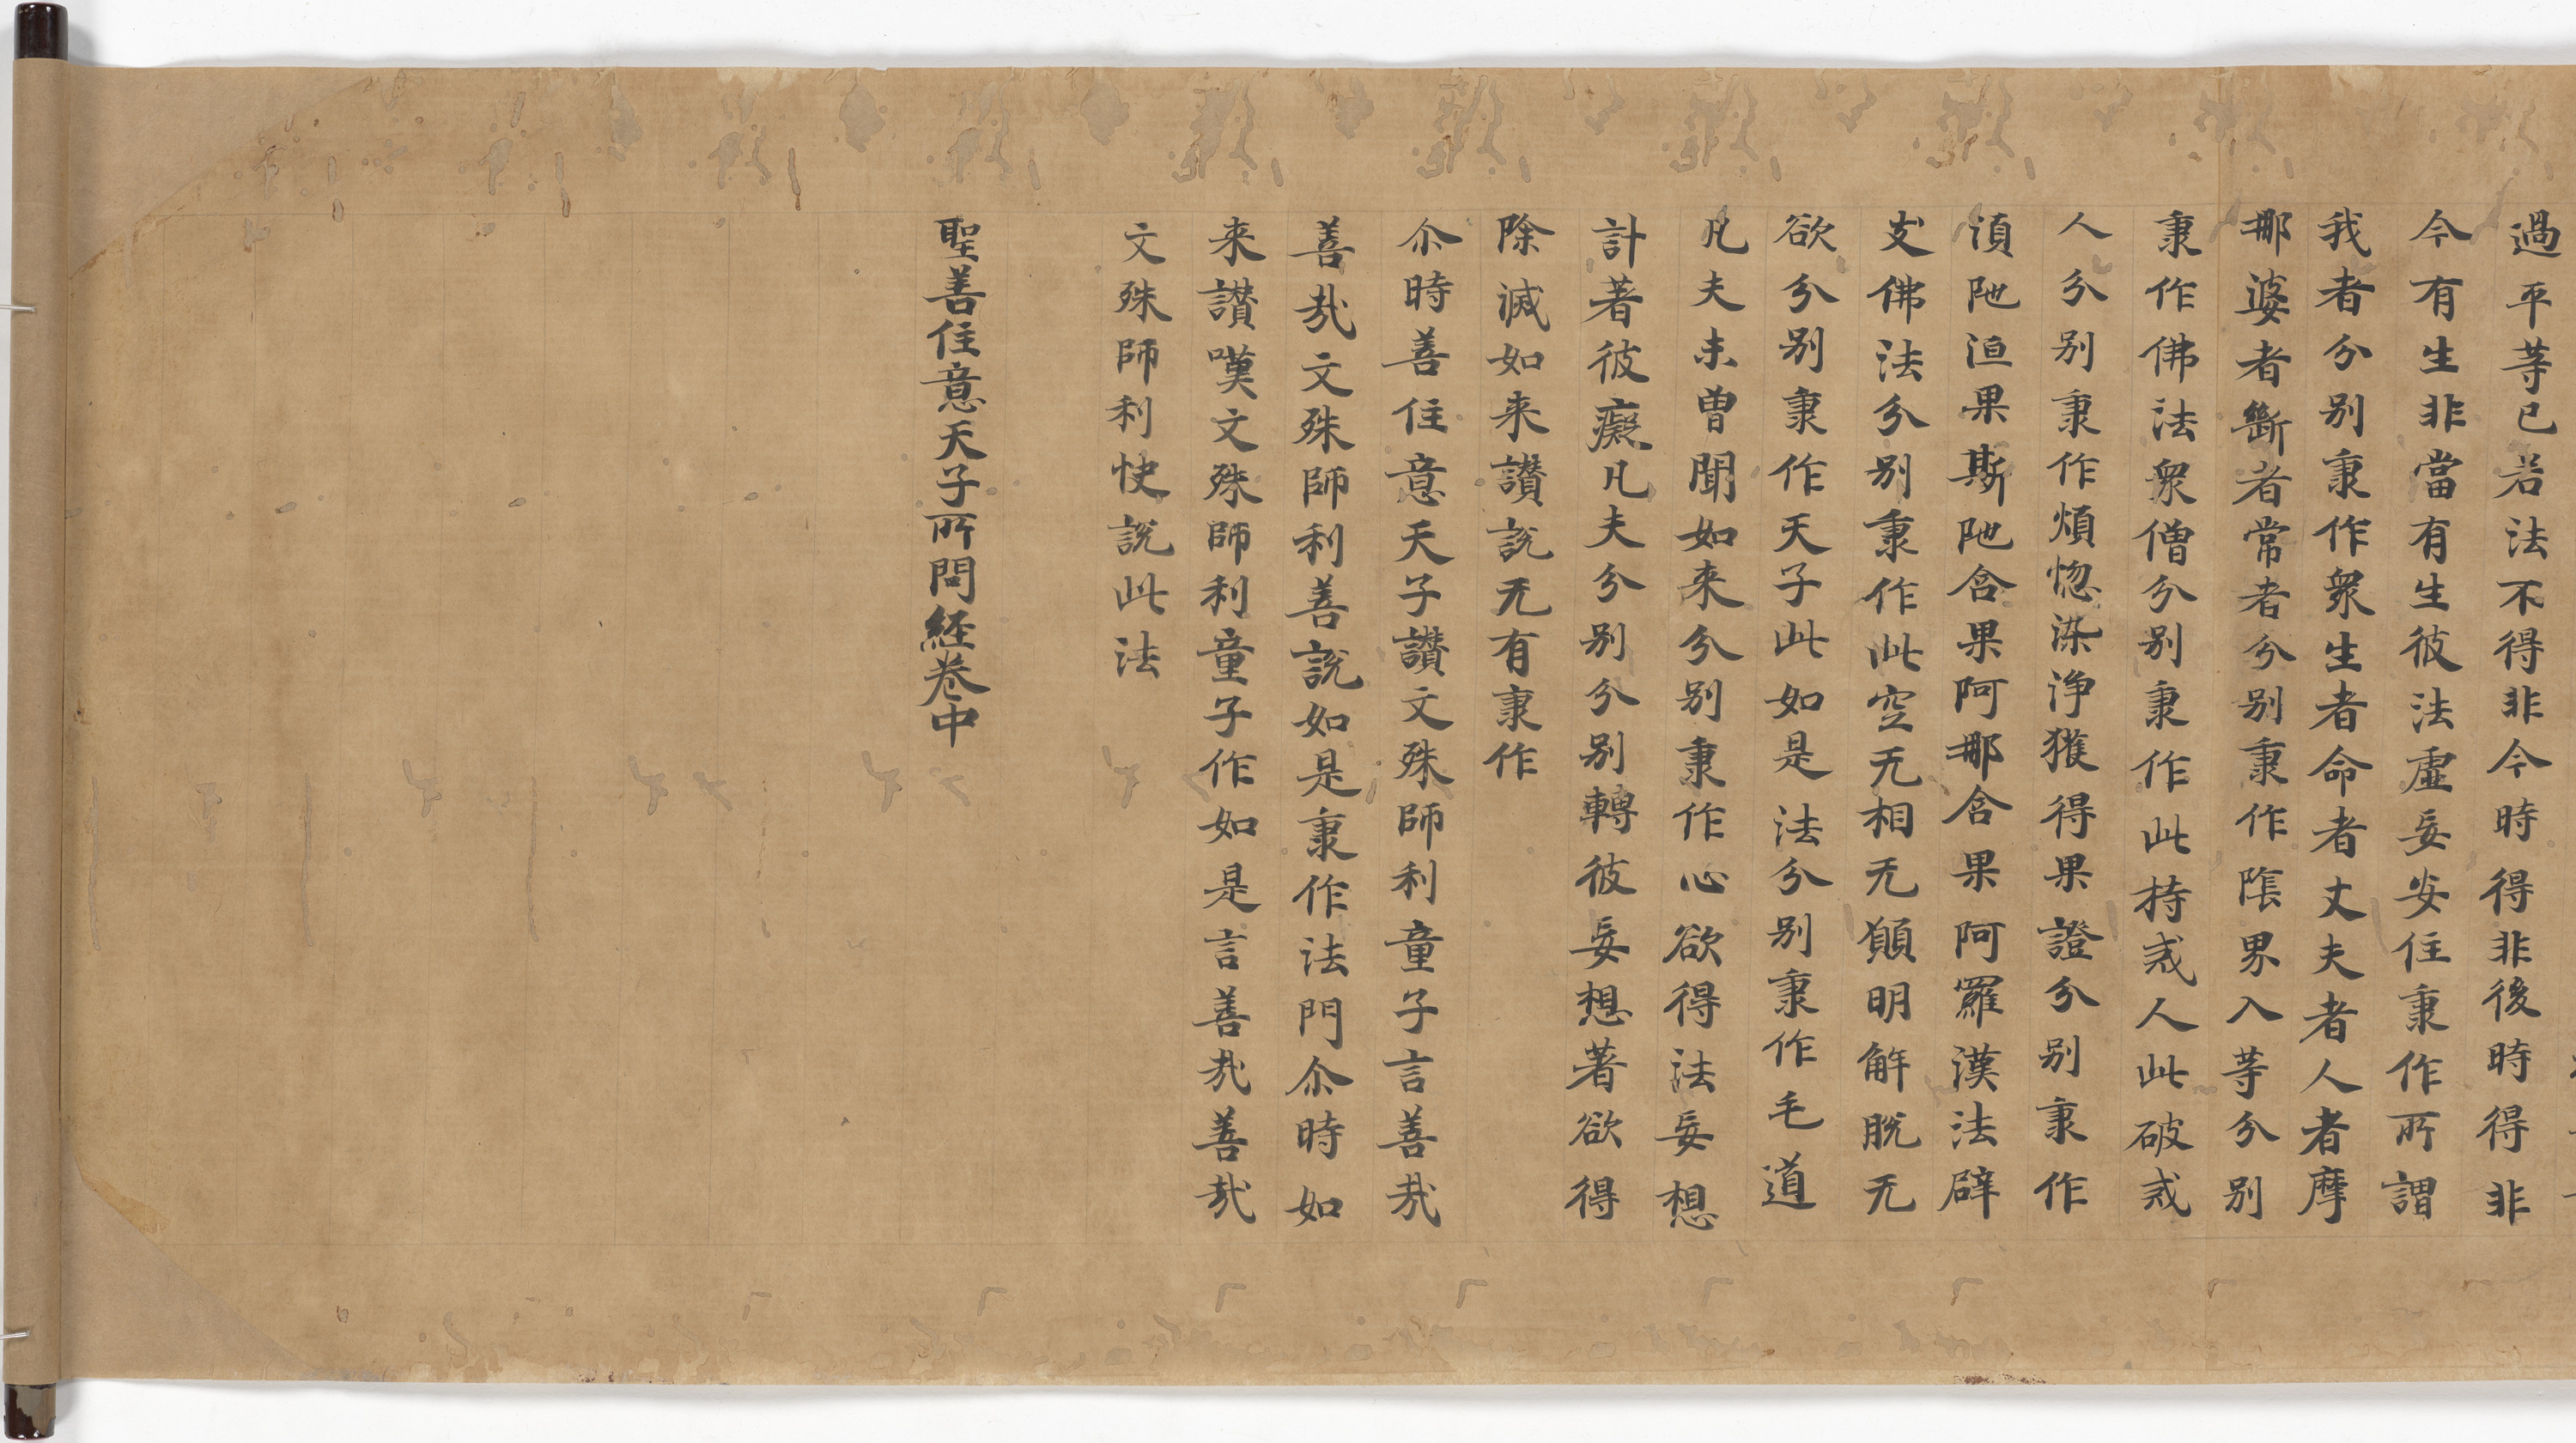 過平等已若法不得非今時得非後時得非
今有生非當有生彼法虛妄安住秉作所謂
我者分別秉作衆生者命者丈夫者人者摩
那婆者斷者常者分別秉作陰界入等分別
秉作佛法衆僧分別秉作此持戒人此破戒
人分別秉作煩惚染淨獲得果證分別秉作
湏陁洹果斯陁含果阿那含果阿羅漢法辟
支佛法分別秉作此空无相无願明解脫无
欲分別秉作天子此如是法分別秉作毛道
凡夫未曽聞如来分別秉作心欲得法妄想
計著彼癡凡夫分別分別轉彼妄想著欲得
除滅如来讃說无有秉作
尒時善住意天子讃文殊師利童子言善哉
善哉文殊師利善說如是秉作法門尒時如
来讃嘆文殊師利童子作如是言善哉善哉
文殊師利快說此法
聖善住意天子所問経卷中